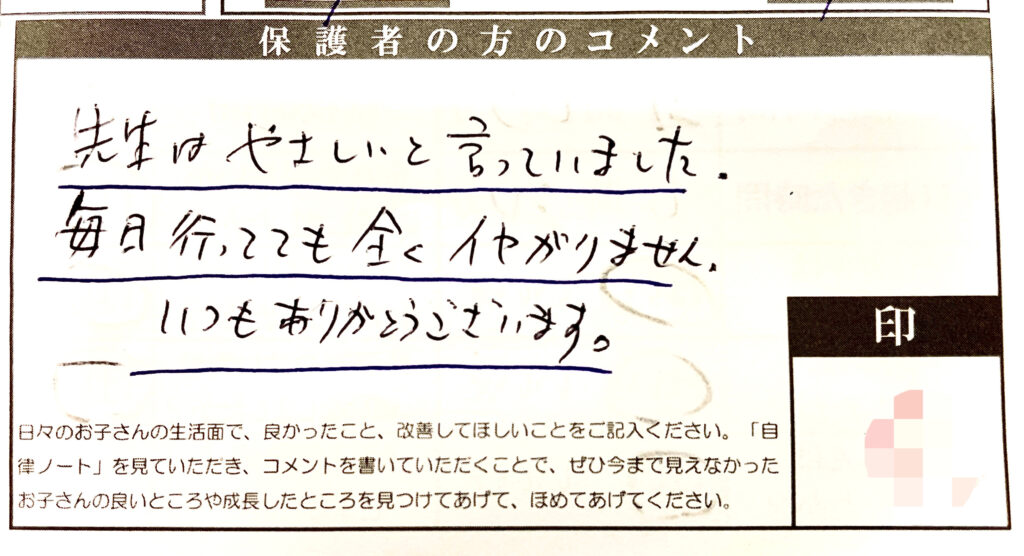 保護者の方のコメント
先生はやさしいと言っていました.
毎日行ってても全くイヤがりません.
いつもありがとうございます。
印
日々のお子さんの生活面で、良かったこと、改善してほしいことをご記入ください。「自
律ノート」を見ていただき、コメントを書いていただくことで、ぜひ今まで見えなかった
お子さんの良いところや成長したところを見つけてあげて、ほめてあげてください。